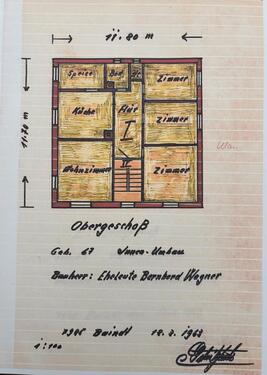 11.80 m
11.70 m
Speise Bad
Zimmer
Küche Flur
I
Zimmer
Wohnzimmer
II
Zimmer
Obergeschoß
Geb. 67 Innen-Umbau
Bauherr: Eheleute Bernhard Wagner
7981 Baindt
1:100